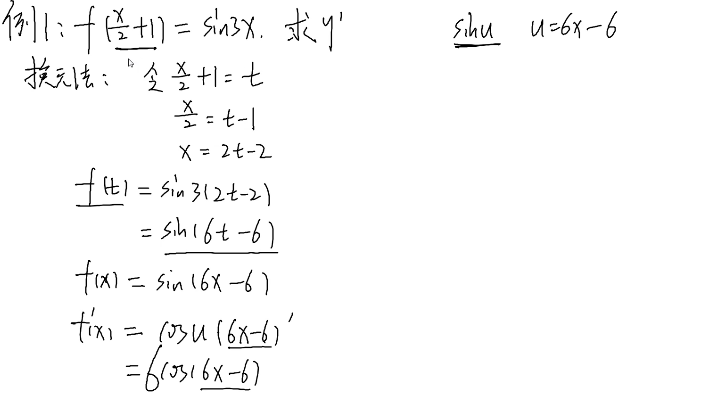 例1: f(x/2+1) = sin3x. 求 y'
sinu u=6x-6
换元法: 令 x/2+1 = t
x/2 = t-1
x = 2t-2
f(t) = sin3(2t-2)
= sin(6t-6)
f(x) = sin(6x-6)
f'(x) = cosu(6x-6)'
=6cos(6x-6)